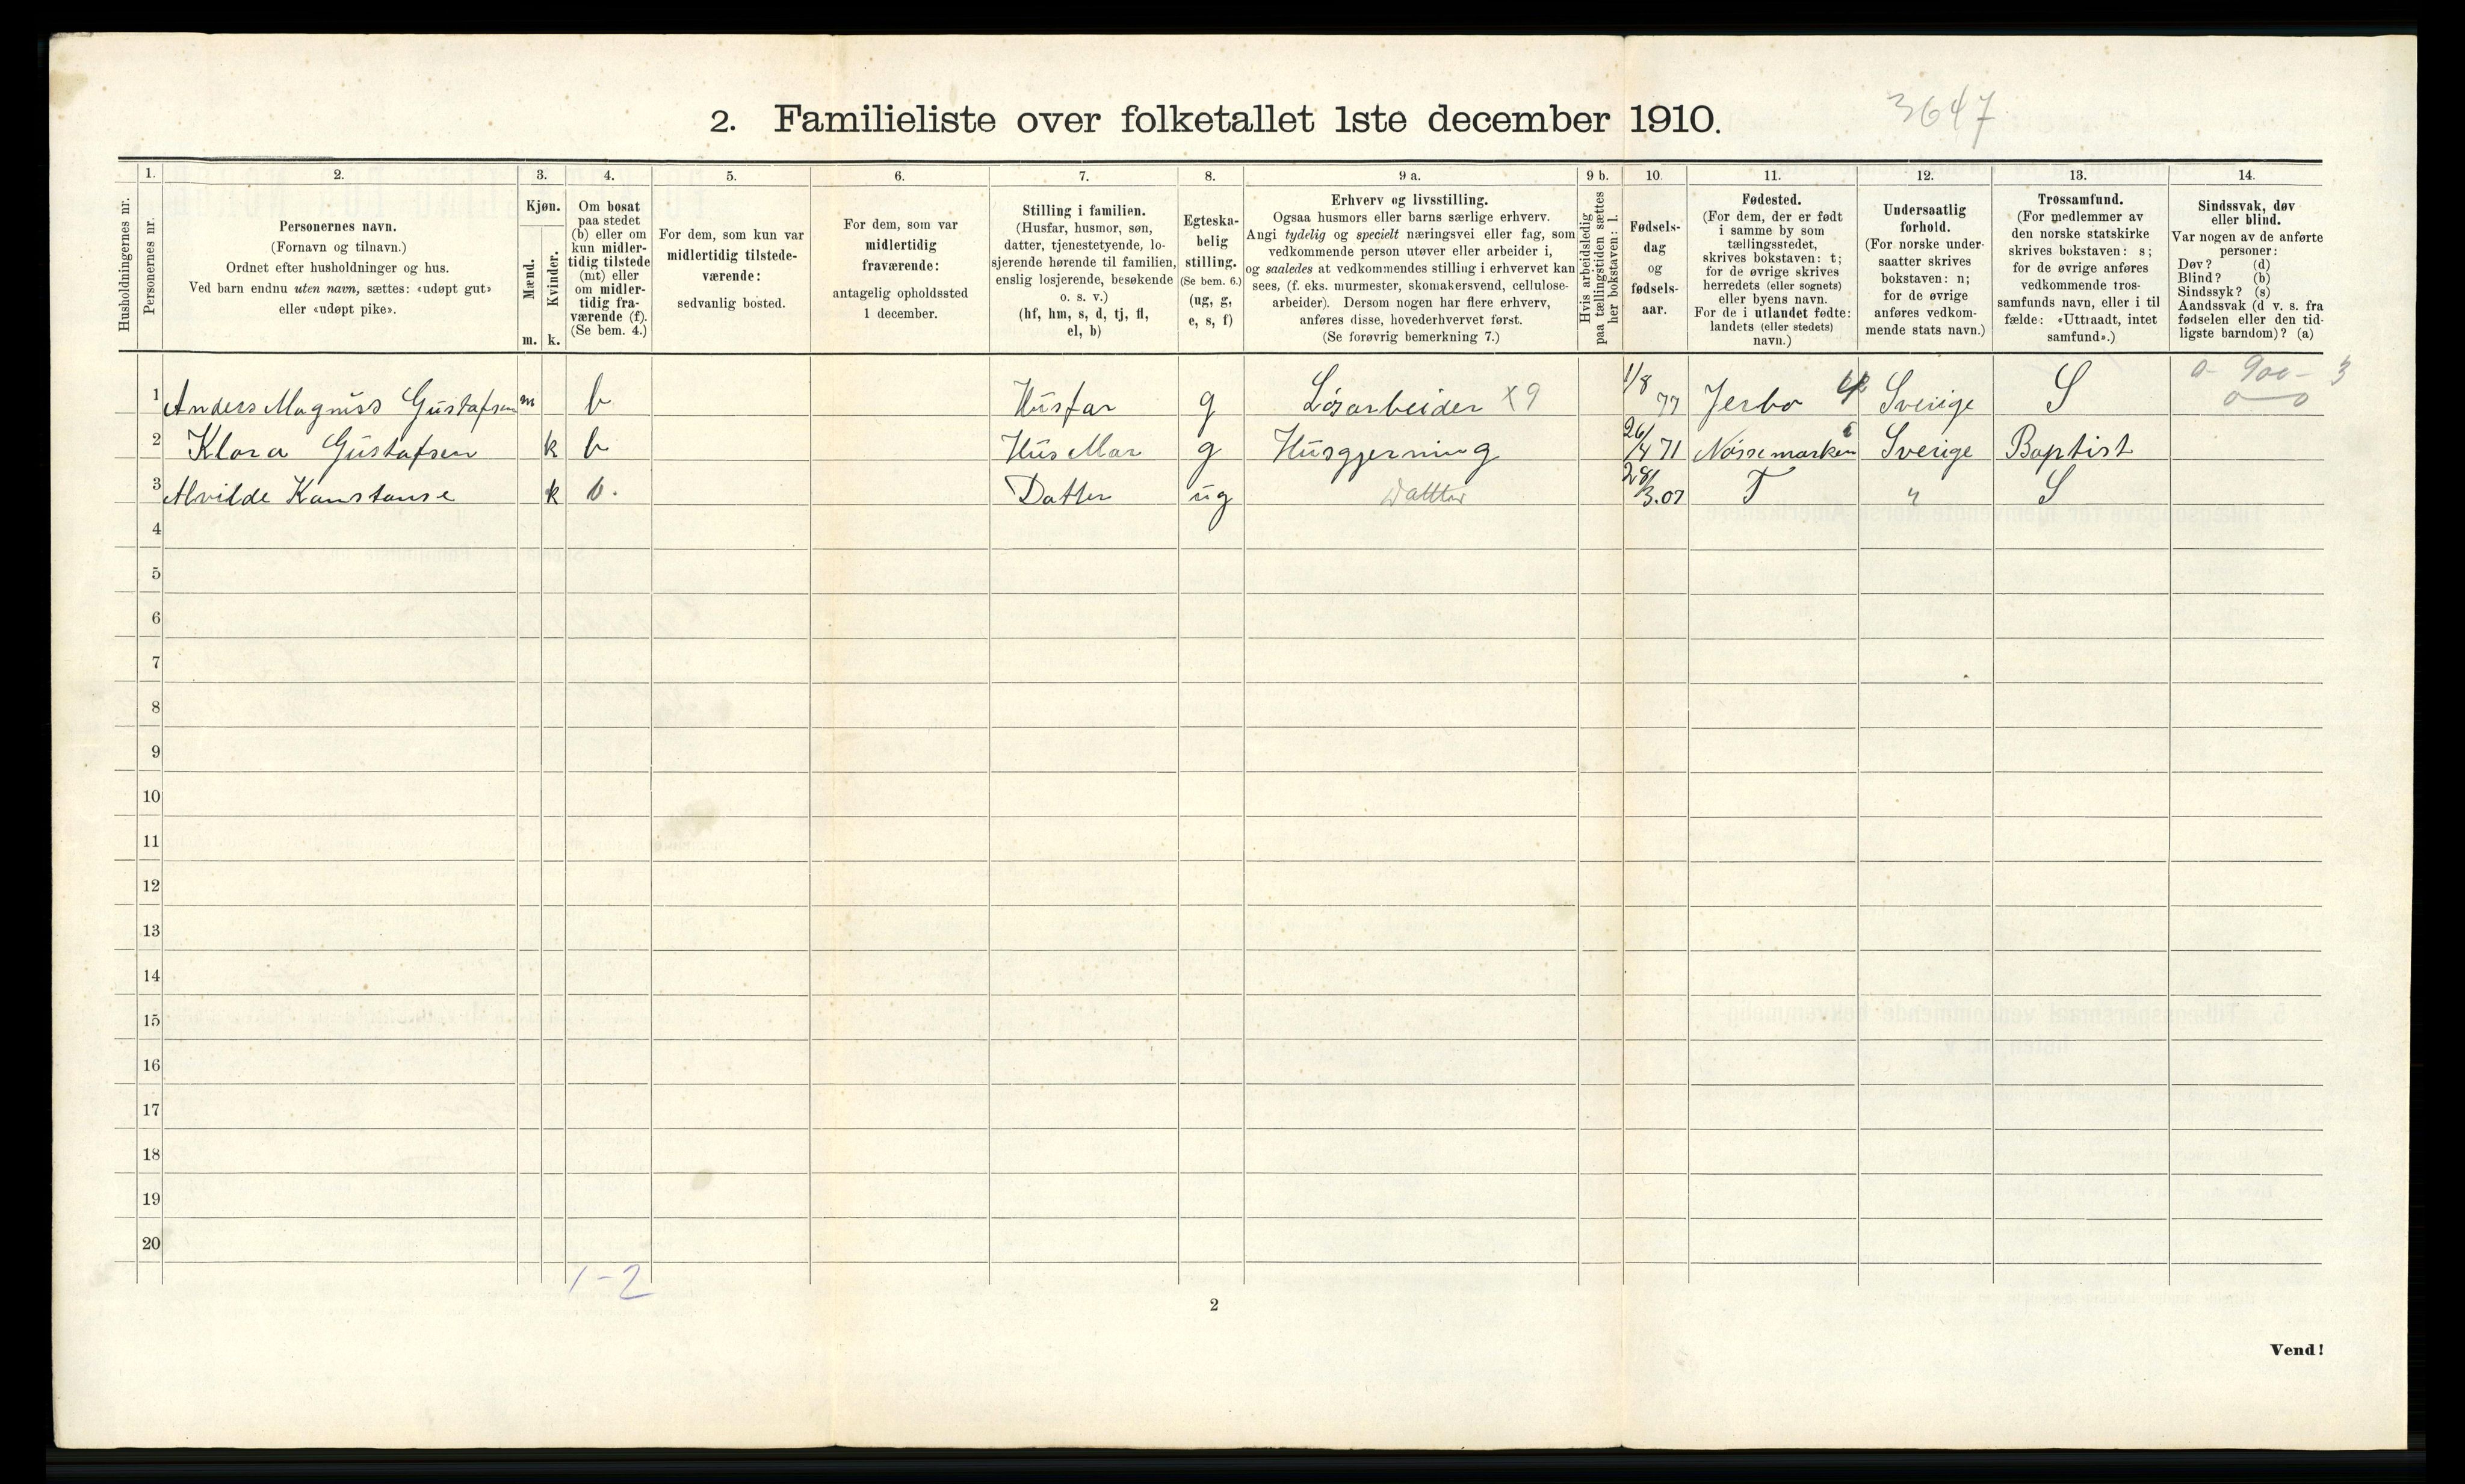 2. Familieliste over folketallet 1ste december 1910.
3647
Husholdningernes nr.
1.
Personernes nr.
2.
Personernes navn.
(Fornavn og tilnavn.)
Ordnet efter husholdninger og hus.
Ved barn endnu uten navn, sættes: «udøpt gut»
eller «udøpt pike».
3.
Kjøn.
Mænd.
Kvinder.
m. k.
4.
Om bosat
paa stedet
(b) eller om
kun midler-
tidig tilstede
(mt) eller
om midler-
tidig fra-
værende (f).
(Se bem. 4.)
5.
For dem, som kun var
midlertidig tilstede-
værende:
sedvanlig bosted.
6.
For dem, som var
midlertidig
fraværende:
antagelig opholdssted
1 december.
7.
Stilling i familien.
(Husfar, husmor, søn,
datter, tjenestetyende, lo-
sjerende hørende til familien,
enslig losjerende, besøkende
o. s. v.)
(hf, hm, s, d, tj, fl,
el, b)
8.
Egteska-
belig
stilling.
(Se bem. 6.)
(ug, g,
e, s, f)
9 a.
Erhverv og livsstilling.
Ogsaa husmors eller barns særlige erhverv.
Angi tydelig og specielt næringsvei eller fag, som
vedkommende person utøver eller arbeider i,
og saaledes at vedkommendes stilling i erhvervet kan
sees, (f. eks. murmester, skomakersvend, cellulose-
arbeider). Dersom nogen har flere erhverv,
anføres disse, hovederhvervet først.
(Se forøvrig bemerkning 7.)
9 b.
Hvis arbeidsledig
paa tællingstiden sættes
her bokstaven: l.
10.
Fødsels-
dag
og
fødsels-
aar.
11.
Fødested.
(For dem, der er født
i samme by som
tællingsstedet,
skrives bokstaven: t;
for de øvrige skrives
herredets (eller sognets)
eller byens navn.
For de i utlandet fødte:
landets (eller stedets)
navn.)
12.
Undersaatlig
forhold.
(For norske under-
saatter skrives
bokstaven: n;
for de øvrige
anføres vedkom-
mende stats navn.)
13.
Trossamfund.
(For medlemmer av
den norske statskirke
skrives bokstaven: s;
for de øvrige anføres
vedkommende tros-
samfunds navn, eller i til-
fælde: «Uttraadt, intet
samfund».)
14.
Sindssvak, døv
eller blind.
Var nogen av de anførte
personer:
Døv? (d)
Blind? (b)
Sindssyk? (s)
Aandssvak (d v. s. fra
fødselen eller den tid-
ligste barndom)? (a)
0 - 900 - 3
0 — 0
1 Anders Magnuss Gustafsen m b Husfar g Løsarbeider x9 1/8 77 Jerbo Sverige S
2 Klara Gustafsen k b Hus Mor g Husgjerning 26/4 71 Nössemarken Sverige Baptist
3 Alvilde Konstanse k b. Datter ug Datter 28/3.07 T " S
4
5
6
7
8
9
10
11
12
13
14
15
16
17
18
19
20
1-2
2
Vend!